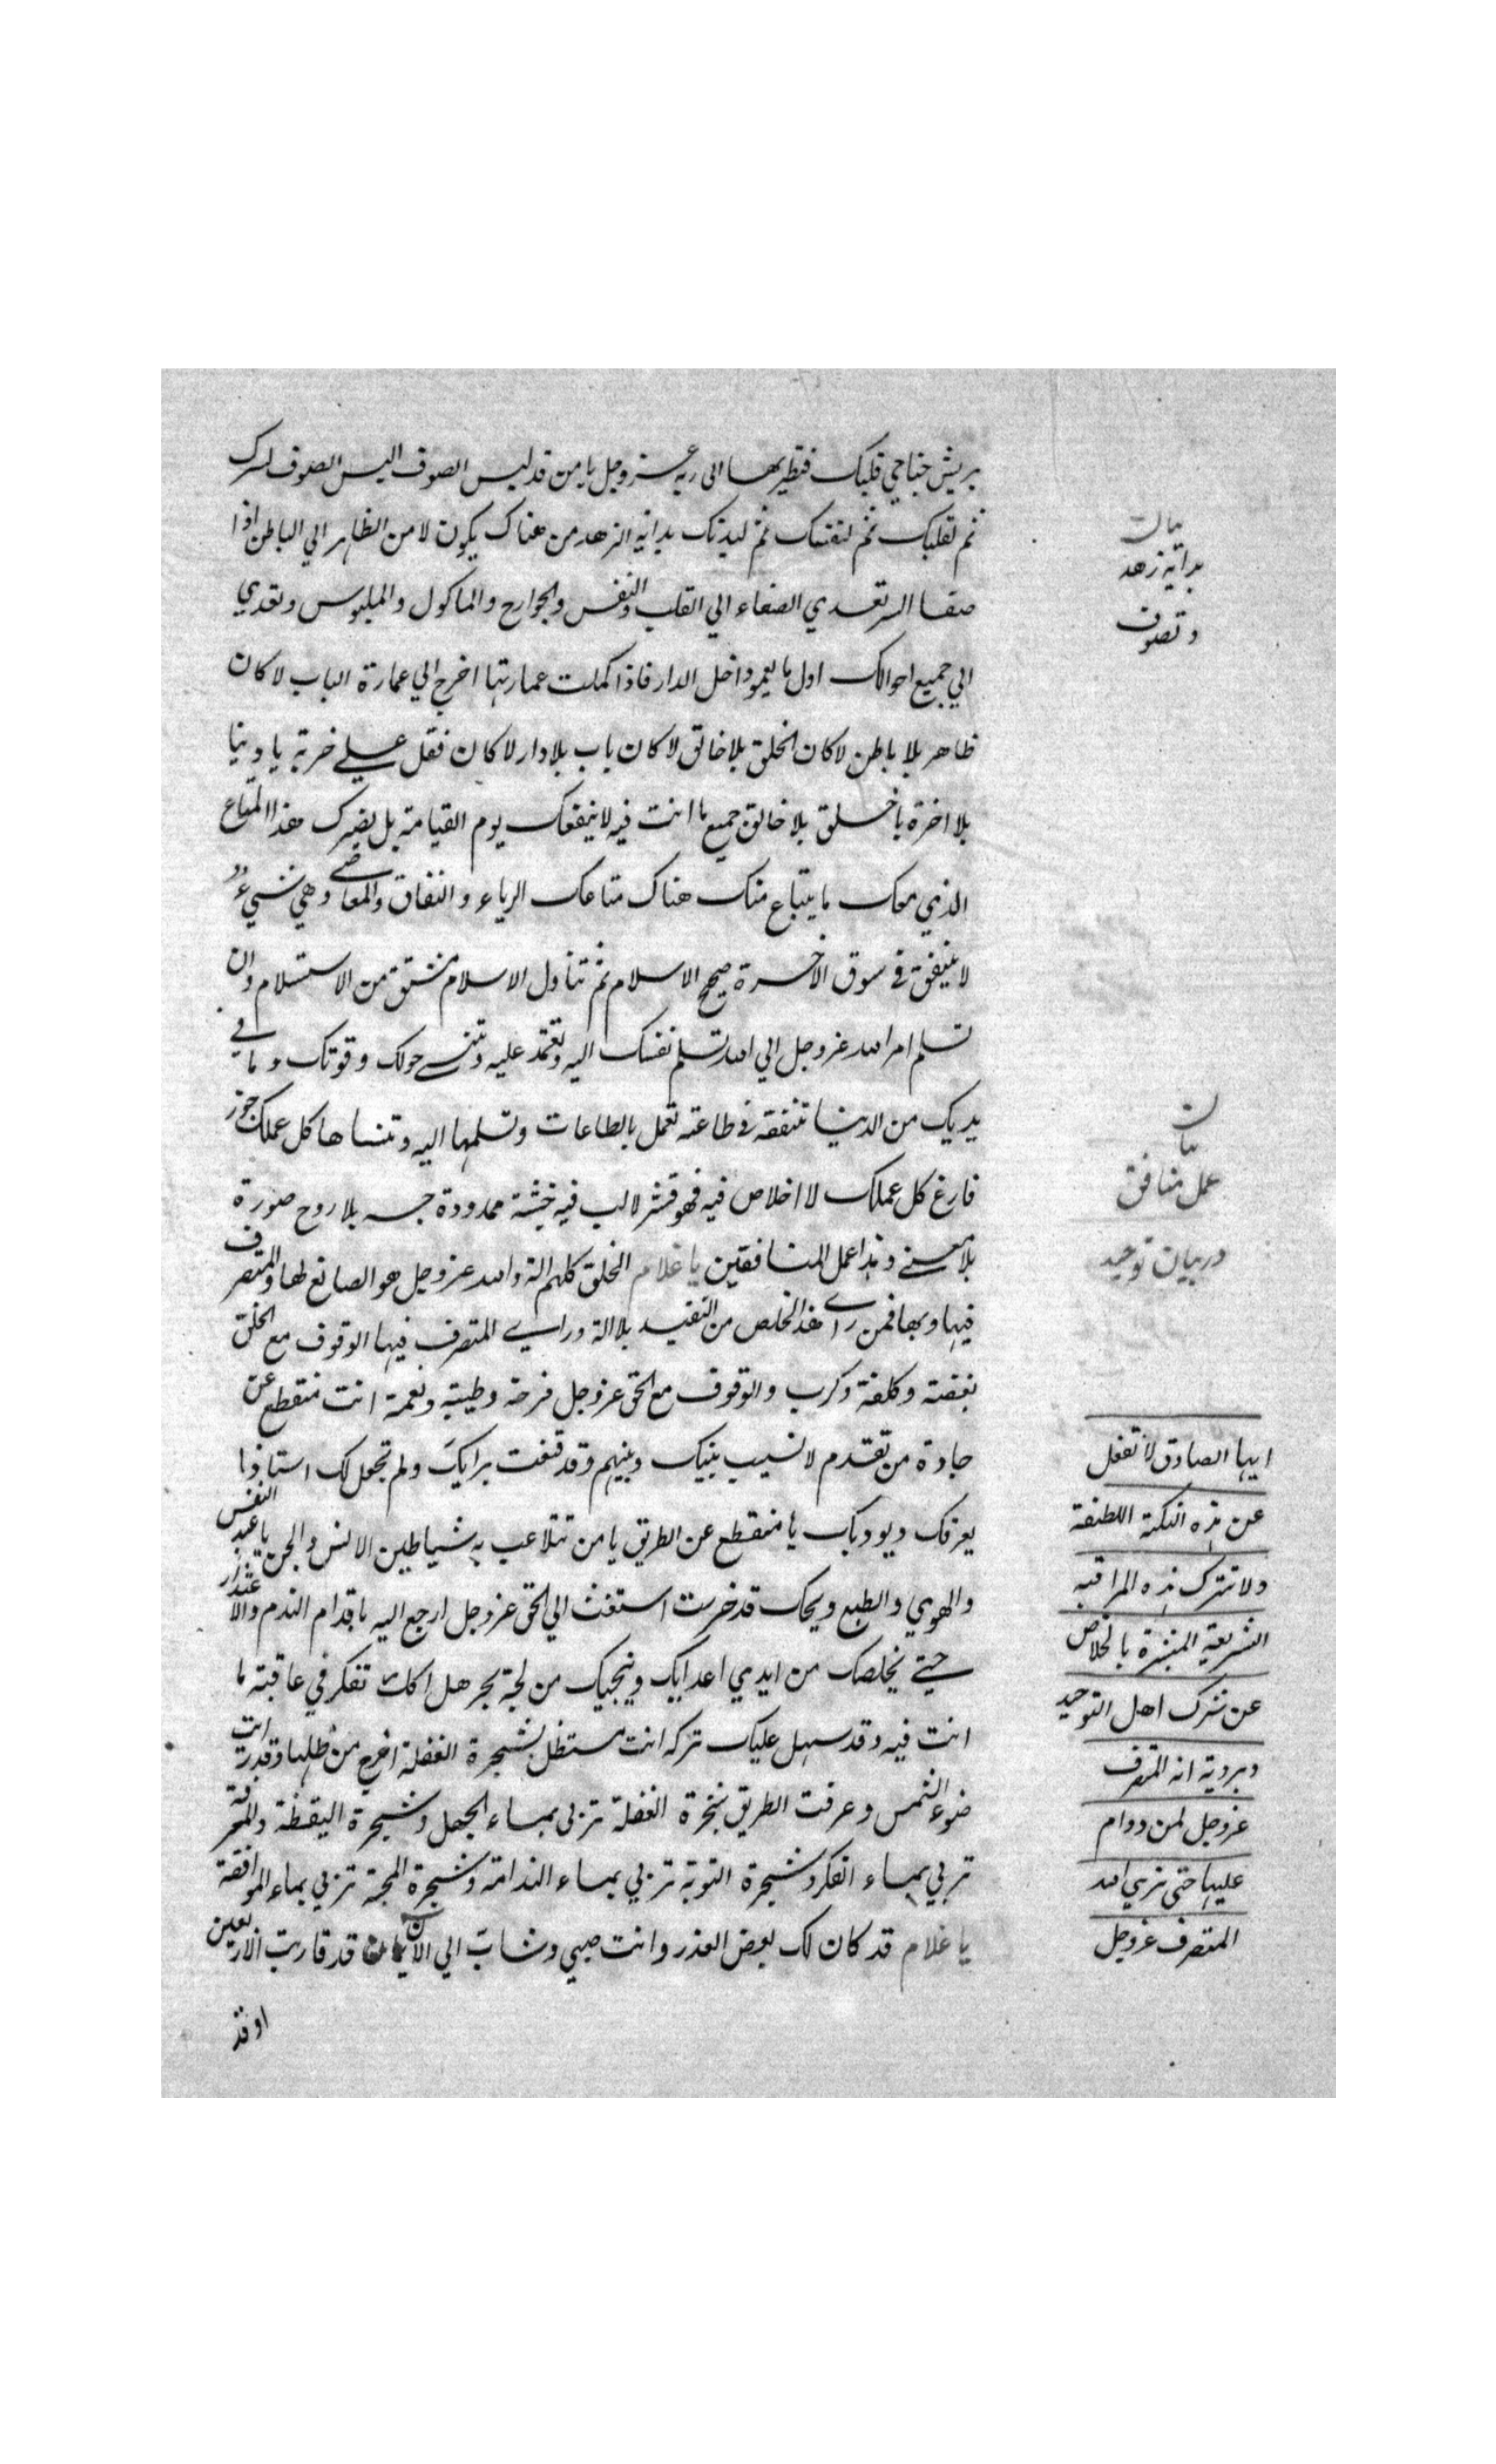 بريش جناحي قلبك فتطير بها الى ربه عز وجل يا من قد لبس الصوف البس الصوف لسرك
ثم لقلبك ثم لنفسك ثم لبدنك بداية الزهد من هناك يكون لا من الظاهر الي الباطن اذا
صفا السر تعدي الصفاء الي القلب والنفس والجوارح والماكول والملبوس وتعدي
الي جميع احوالك اول ما يعمر داخل الدار فاذا كملت عمارتها اخرج الي عمارة الباب لا كان
ظاهر بلا باطن لا كان الخلق بلا خالق لا كان باب بلا دار لا كان فقل علي خربة يا دنيا
بلا اخرة يا خلق بلا خالق جميع ما انت فيه لا ينفعك يوم القيامة بل يضرك هذا المتاع
الذي معك ما يتباع منك هناك متاعك الرياء والنفاق والمعاصي وهي شيء
لا ينفق في سوق الاخرة صحح الاسلام ثم تناول الاسلام مشتق من الاستسلام وان
تسلم امر الله عز وجل الي الله تسلم نفسك اليه وتعتمد عليه وتنسي حولك وقوتك وما في
يديك من الدنيا تنفقه في طاعته تعمل بالطاعات وتسلمها اليه وتنساها كل عملك جوز
فارغ كل عملك لا اخلاص فيه فهو قشر لا لب فيه خشبة ممدودة جسد بلا روح صورة
بلا معني وهذا عمل المنافقين يا غلام الخلق كلهم الة والله عز وجل هو الصانع لها والمتصرف
فيها وبها فمن راي هذا تخلص من التقيد بلا الة وراي المتصرف فيها الوقوف مع الخلق
بغضة وكلفة وكرب والوقوف مع الحق عز وجل فرحة وطيبة ونعمة انت منقطع عن
جادة من تقدم لا نسب بينك وبينهم وقد قنعت برايك ولم تجعل لك استاذا
يعرفك ويودبك يا منقطع عن الطريق يا من تتلاعب به شياطين الانس والجن يا عبد النفس
والهوي والطبع ويحك قد خرست استغث الي الحق عز وجل ارجع اليه باقدام الندم والاعتذار
حتي يخلصك من ايدي اعدايك وينجيك من لجة بحر هلاكك تفكر في عاقبة ما
انت فيه وقد سهل عليك تركه انت مستظل بشجرة الغفلة اخرج من ظلها وقد رايت
ضوء الشمس وعرفت الطريق شجرة الغفلة تربى بماء الجهل وشجرة اليقظة والمعرفة
تربي بماء الفكر وشجرة التوبة تربي بماء الندامة وشجرة المحبة تربي بماء الموافقة
يا غلام قد كان لك بعض العذر وانت صبي وشاب الي الان قد قاربت الاربعين
او قد
بيان
بداية زهد
وتصوف
بيان
عمل منافق
در بيان توحيد
ايها الصادق لا تغفل
عن هذه النكتة اللطيفة
ولا تترك هذه المراقبة
الشريفة المبشرة بالخلاص
عن شرك اهل التوحيد
وبروية انه المتصرف
عز وجل لمن دوام
عليها حتى تري الله
المتصرف عز وجل